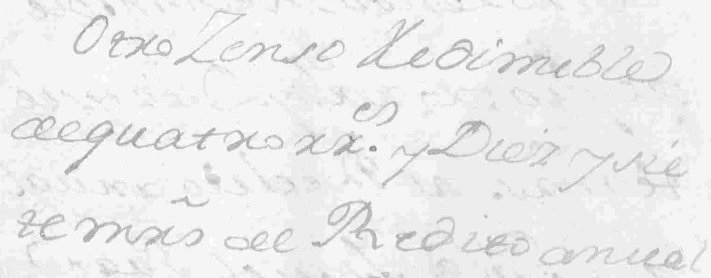 Otro Zenso Redimeble
de quatro rr.es y Diez y sie
te mrs de Redito anual